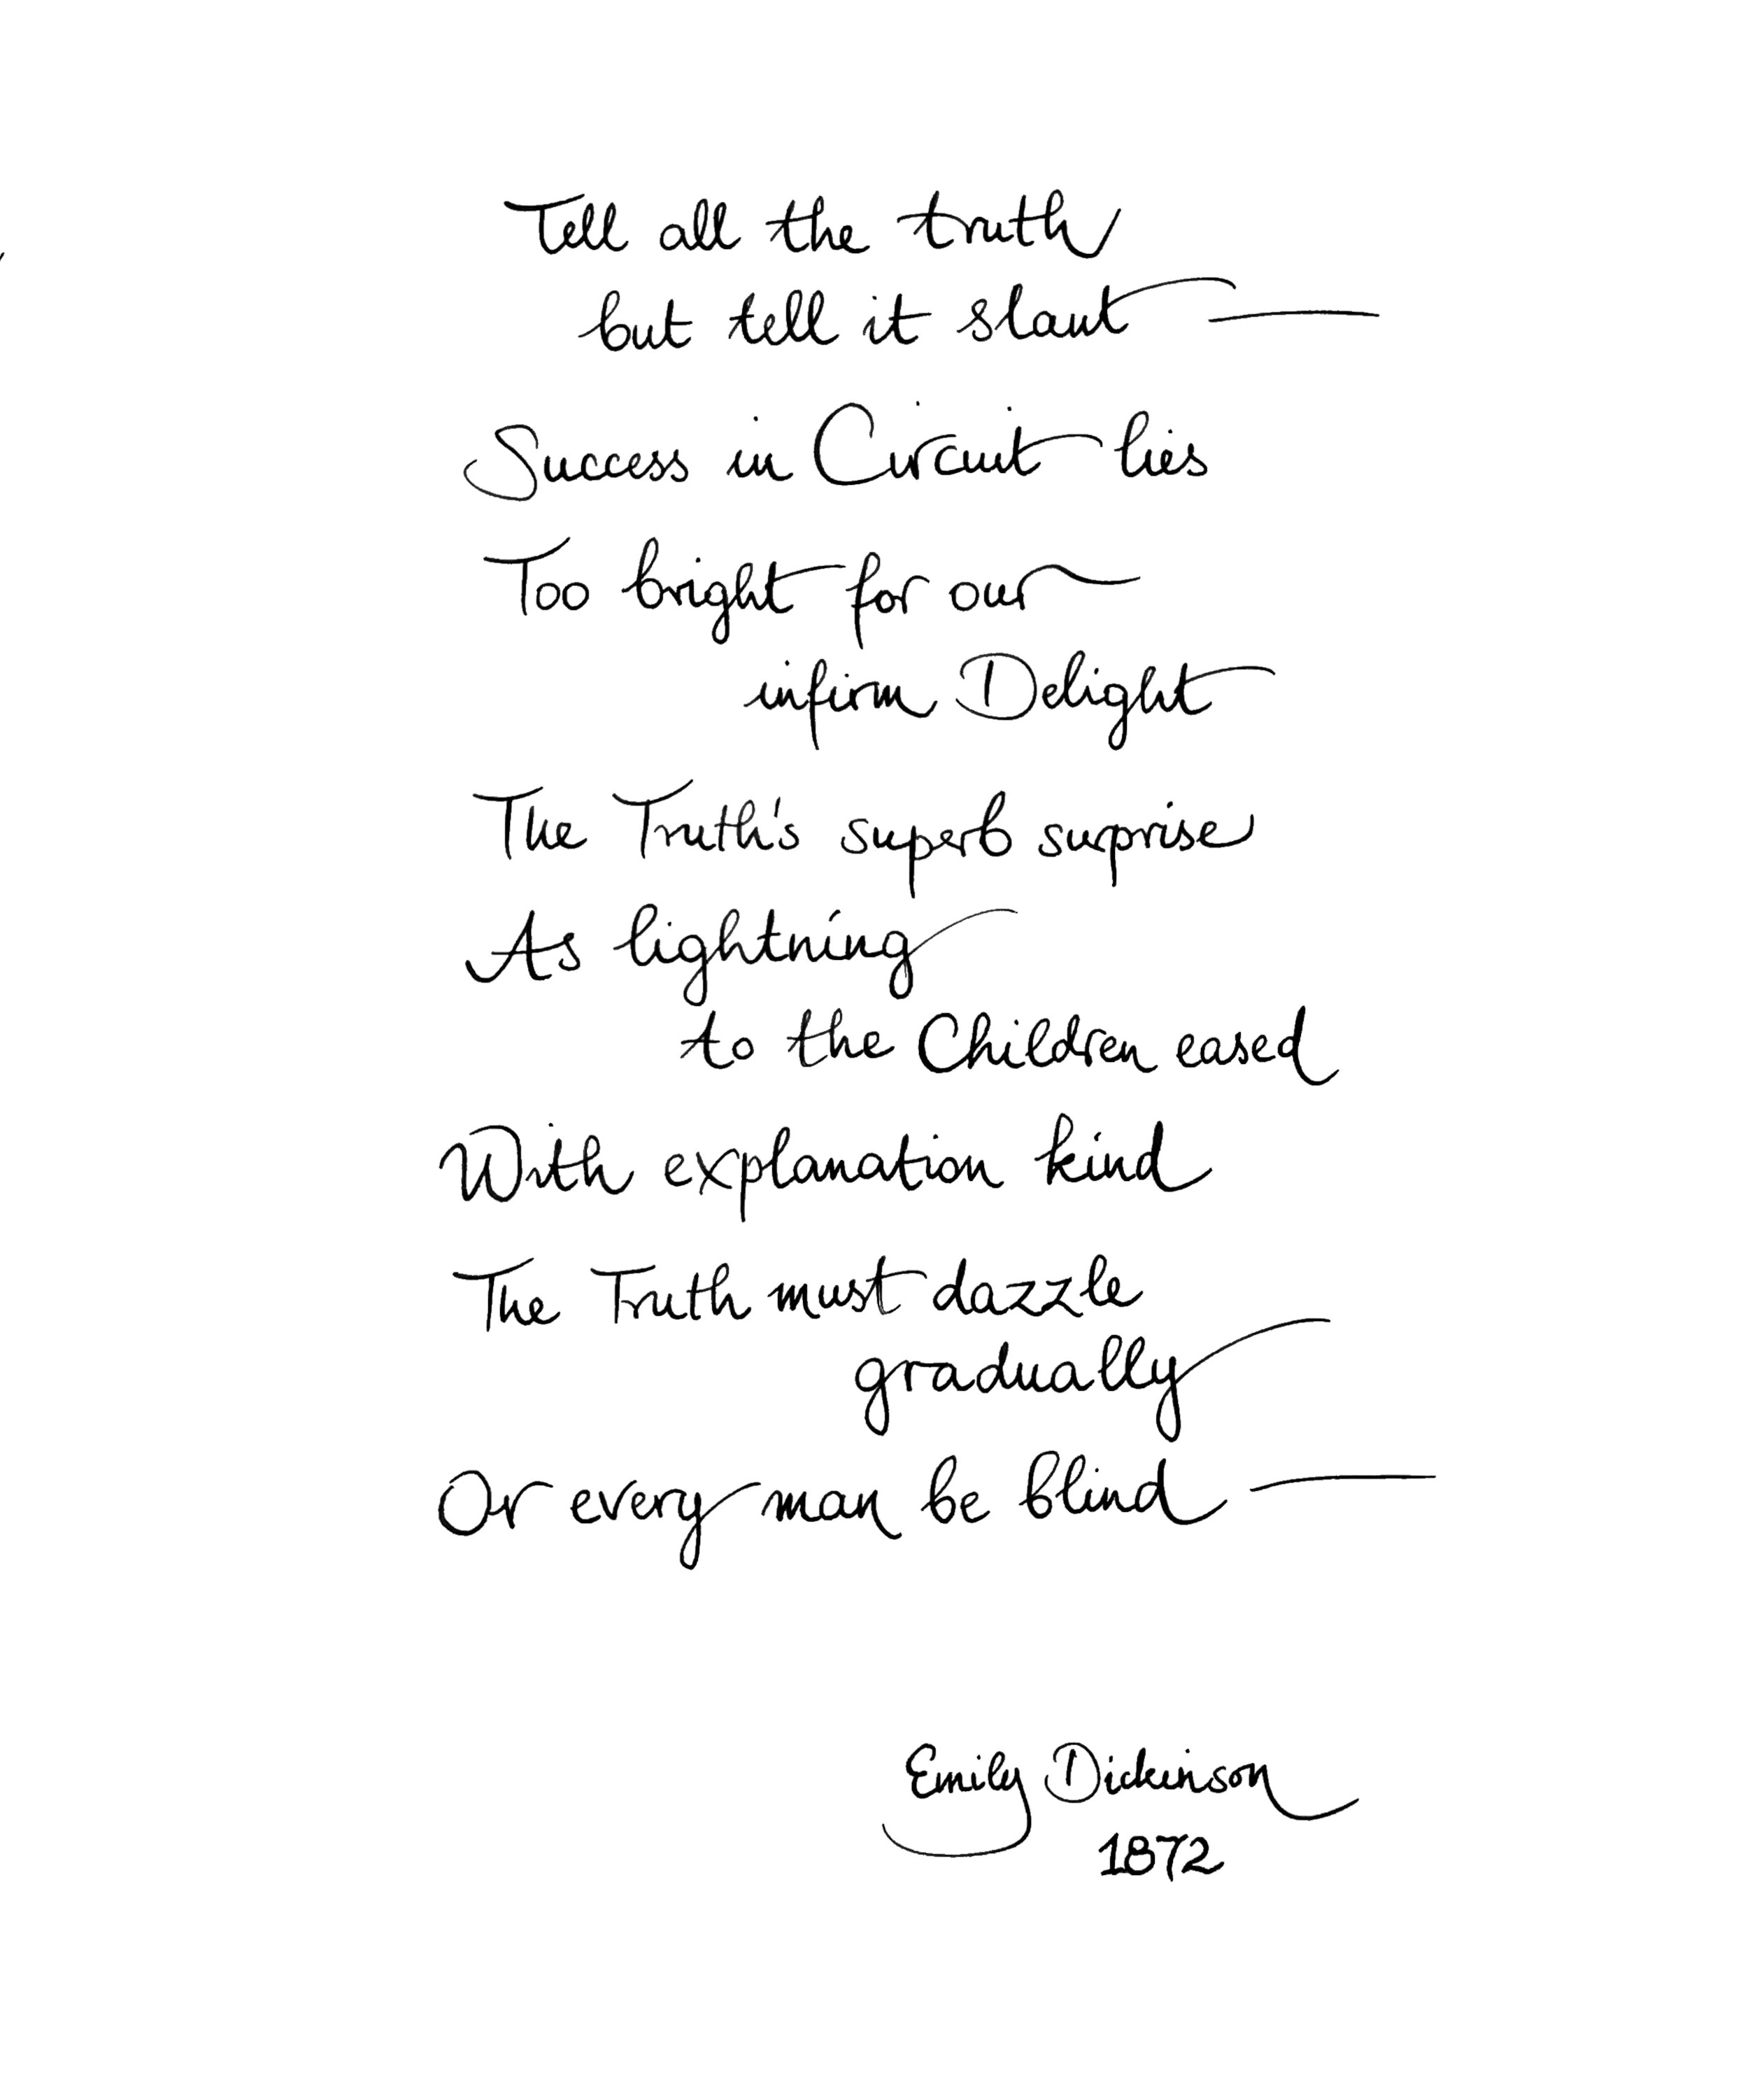 Tell all the truth
but tell it slant —
Success in Circuit lies
Too bright for our
infirm Delight
The Truth's superb surprise
As lightning
to the Children eased
With explanation kind
The Truth must dazzle
gradually
Or every man be blind —
Emily Dickinson
1872